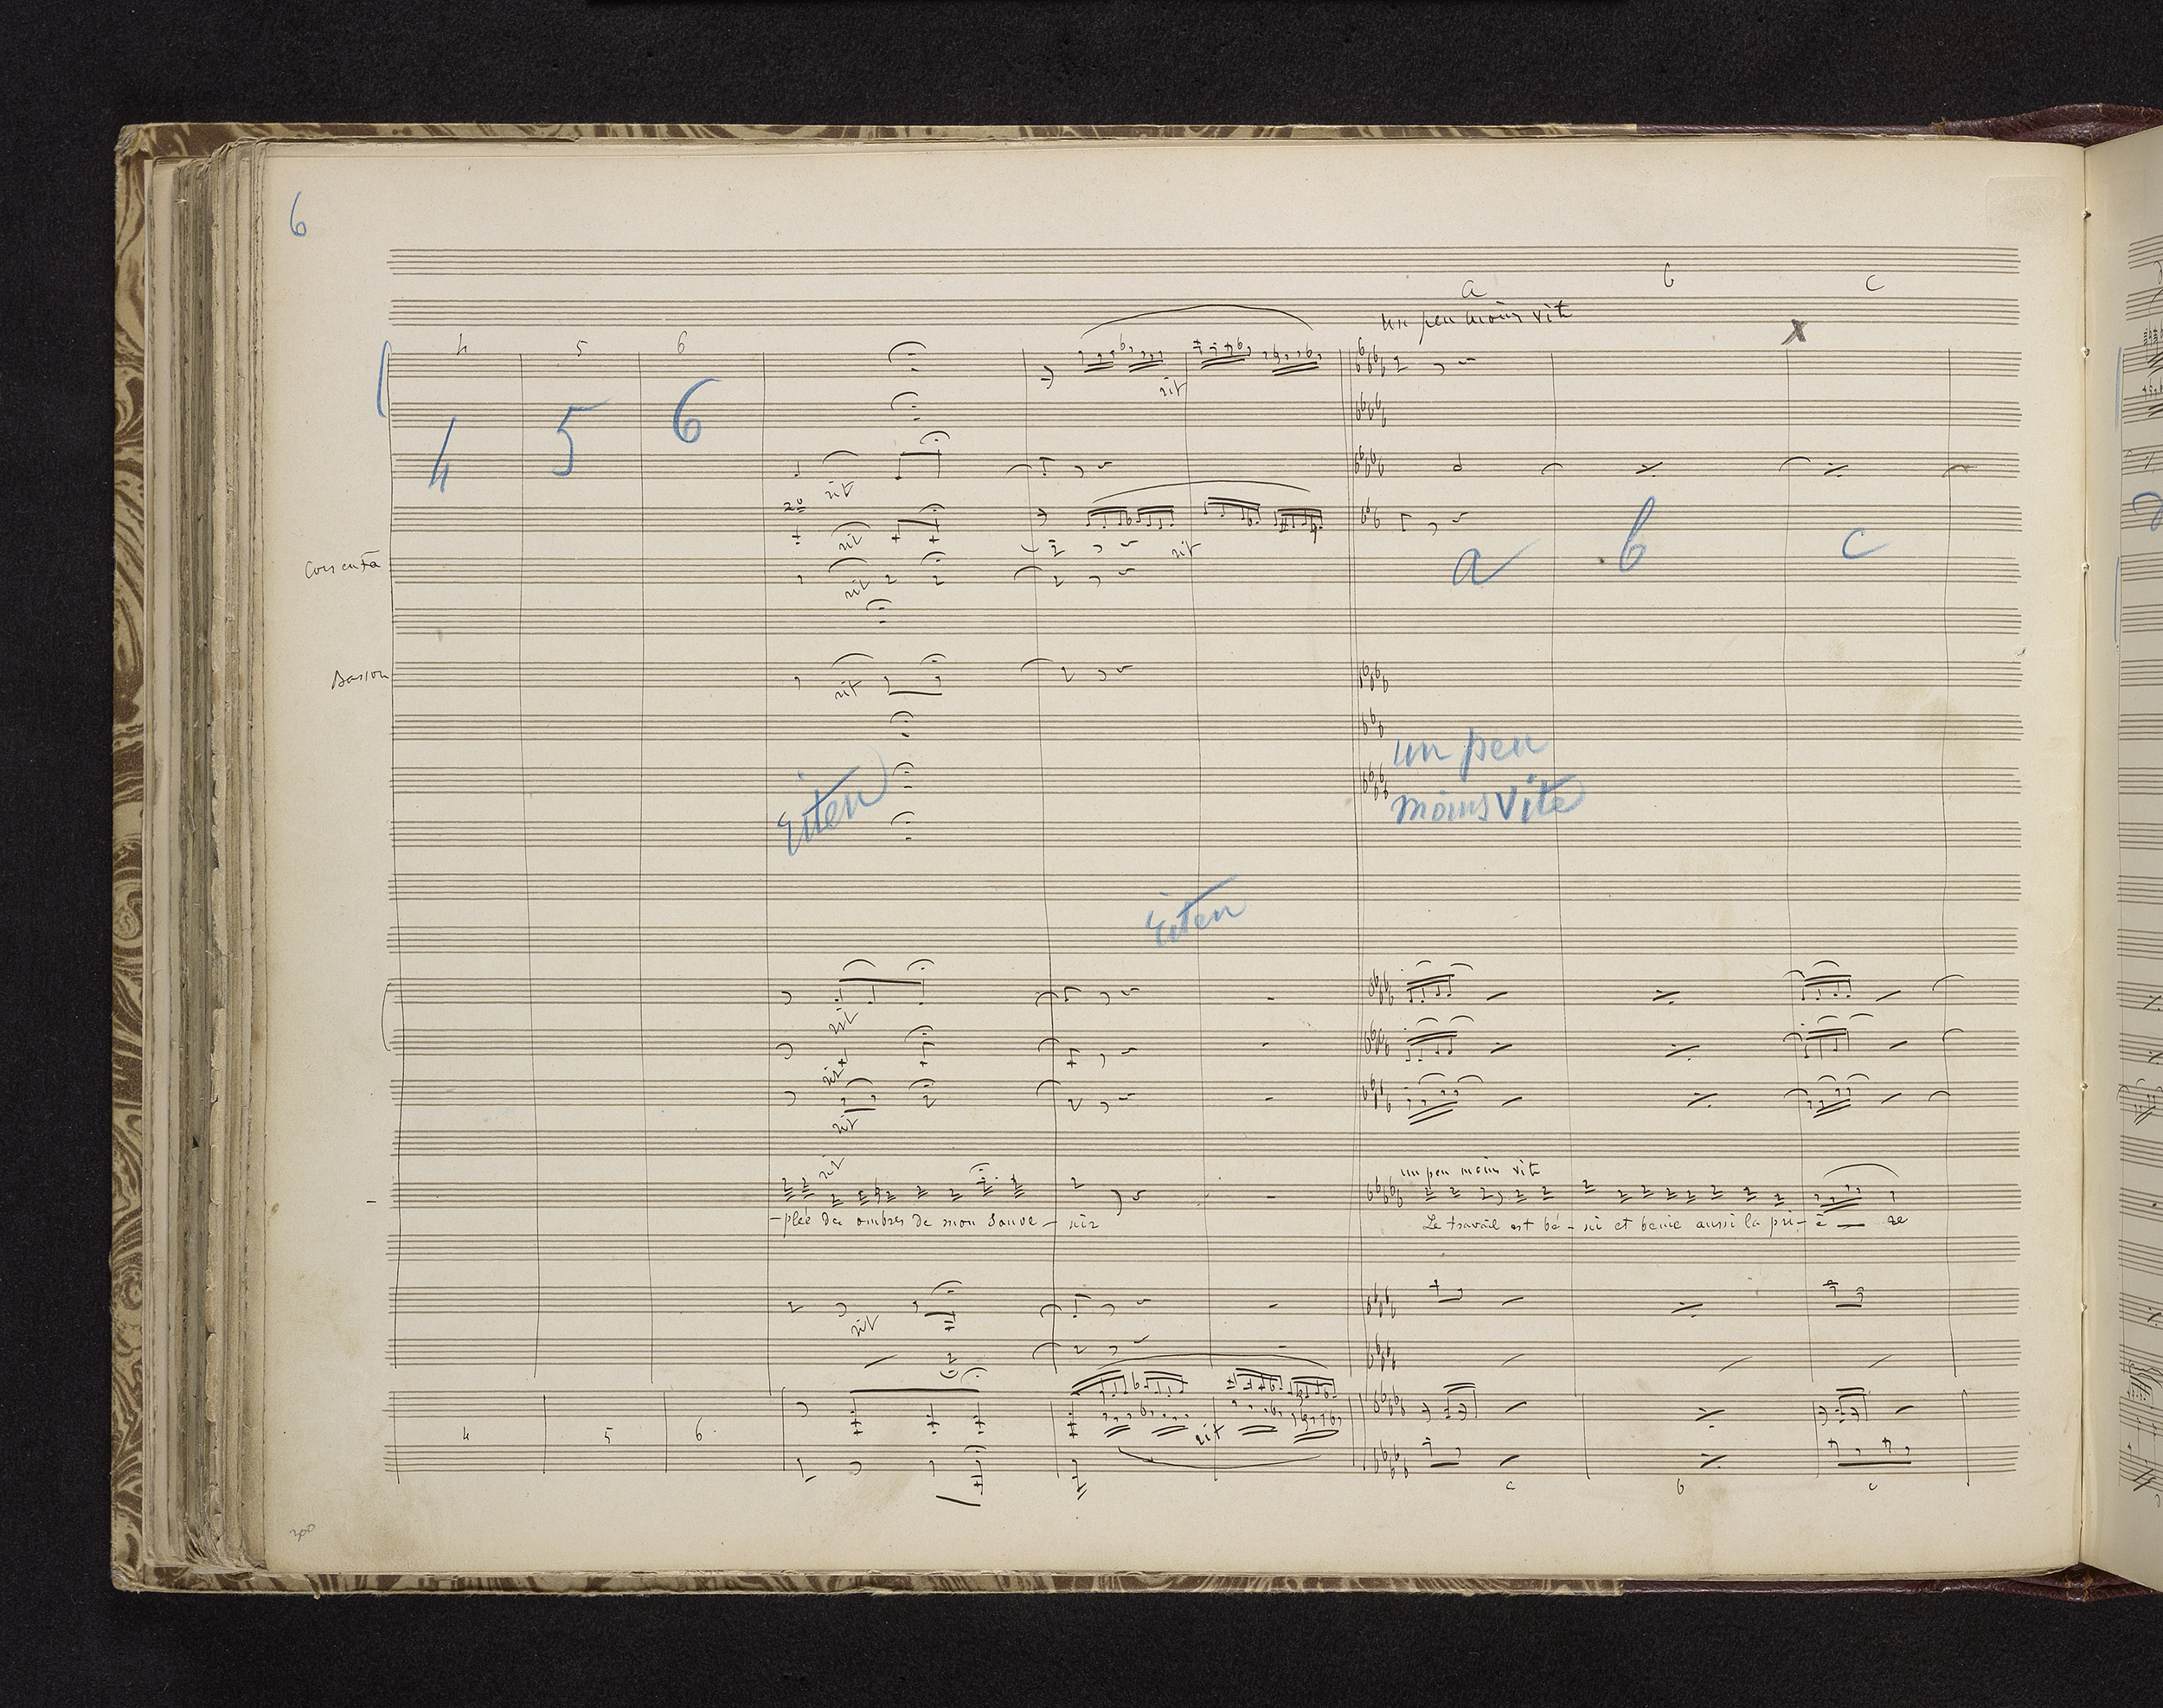 6
a b c
un peu moins vite
x
4 5 6
4 5 6
rit
rit
2º
rit rit
Cor en fa
rit
a b c
Basson
rit
un peu
moins vite
riten
riten
rit
rit
rit
rit
un peu moins vite
-plée des ombres de mon souve - nir Le travail est bé - ni et bénie aussi la pri - è — re
rit
rit
4 5 6
a b c
200